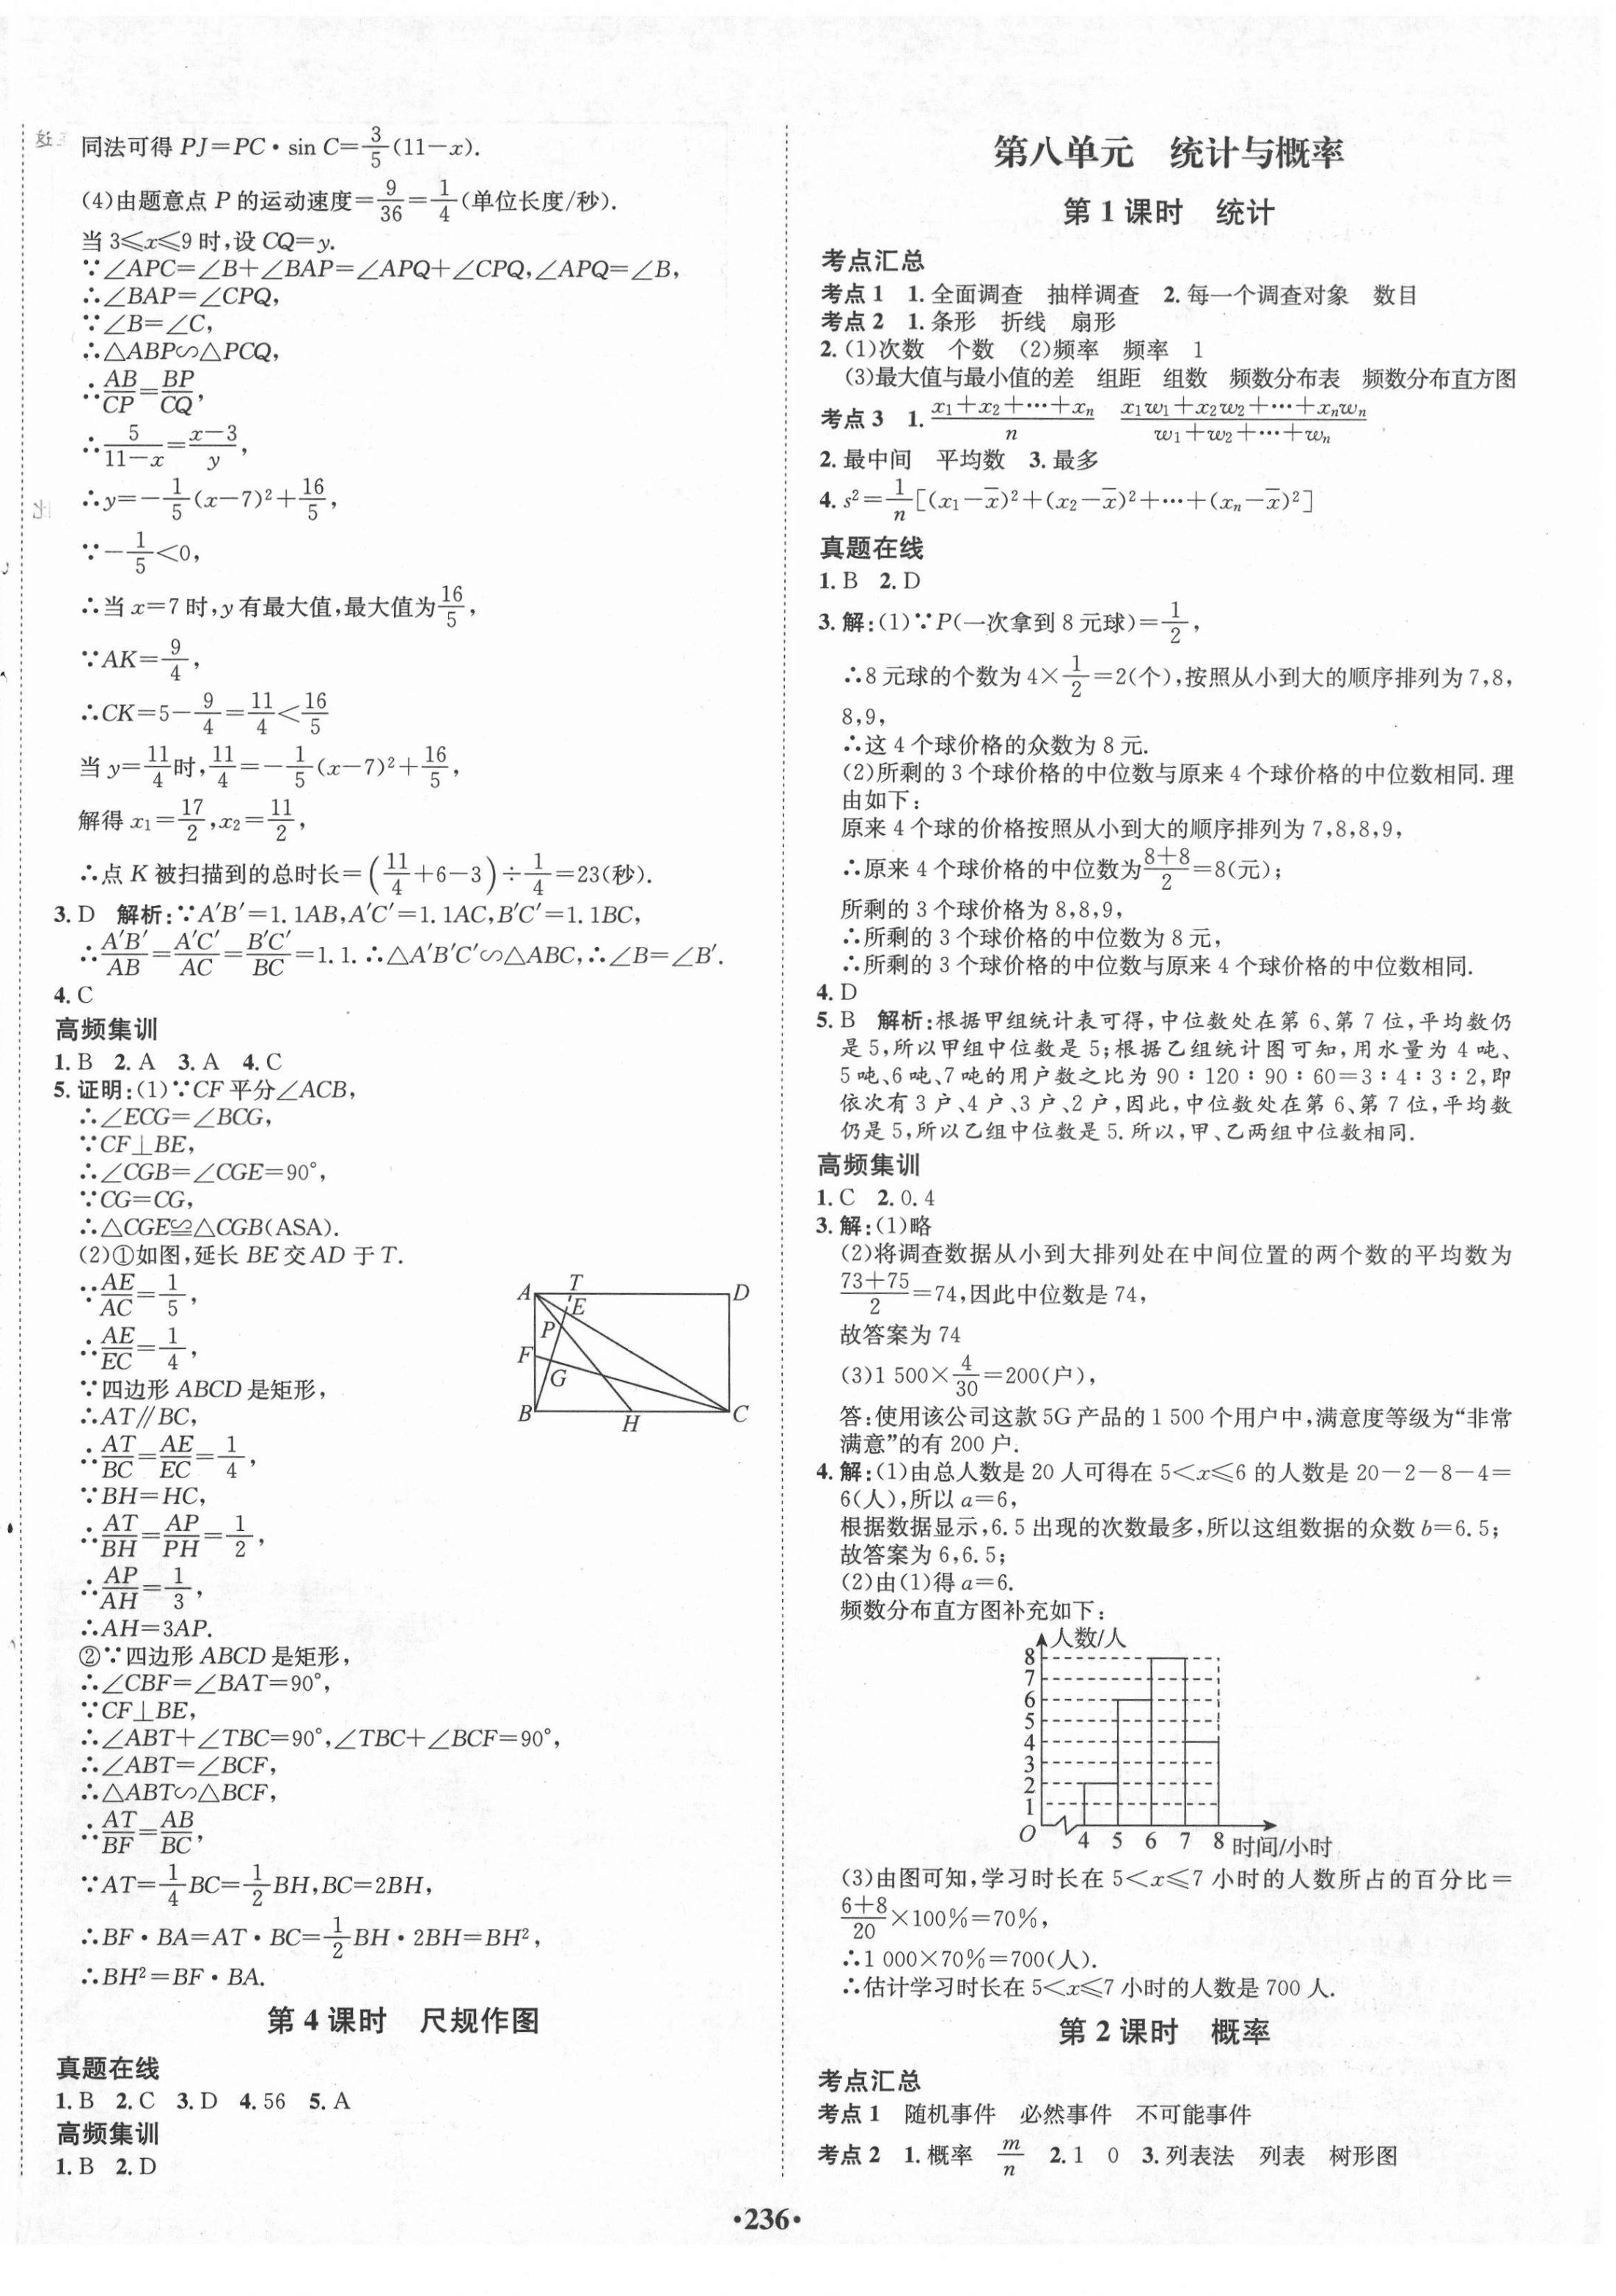 同法可得 PJ=PC·sin C=3/5(11-x).
(4)由题意点 P 的运动速度=9/36=1/4(单位长度/秒).
当 3≤x≤9 时,设 CQ=y.
∵∠APC=∠B+∠BAP=∠APQ+∠CPQ,∠APQ=∠B,
∴∠BAP=∠CPQ,
∵∠B=∠C,
∴△ABP∽△PCQ,
∴AB/CP=BP/CQ,
∴5/(11-x)=(x-3)/y,
∴y=-1/5(x-7)²+16/5,
∵-1/5<0,
∴当 x=7 时,y 有最大值,最大值为16/5,
∵AK=9/4,
∴CK=5-9/4=11/4<16/5
当 y=11/4时,11/4=-1/5(x-7)²+16/5,
解得 x₁=17/2,x₂=11/2,
∴点 K 被扫描到的总时长=(11/4+6-3)÷1/4=23(秒).
3. D 解析:∵A′B′=1.1AB,A′C′=1.1AC,B′C′=1.1BC,
∴A′B′/AB=A′C′/AC=B′C′/BC=1.1.∴△A′B′C′∽△ABC,∴∠B=∠B′.
4. C
高频集训
1. B 2. A 3. A 4. C
5. 证明:(1)∵CF 平分∠ACB,
∴∠ECG=∠BCG,
∵CF⊥BE,
∴∠CGB=∠CGE=90°,
∵CG=CG,
∴△CGE≌△CGB(ASA).
(2)①如图,延长 BE 交 AD 于 T.
∵AE/AC=1/5,
∴AE/EC=1/4,
∵四边形 ABCD 是矩形,
∴AT∥BC,
∴AT/BC=AE/EC=1/4,
∵BH=HC,
∴AT/BH=AP/PH=1/2,
∴AP/AH=1/3,
∴AH=3AP.
A T D
E
P
F
G
B H C
②∵四边形 ABCD 是矩形,
∴∠CBF=∠BAT=90°,
∵CF⊥BE,
∴∠ABT+∠TBC=90°,∠TBC+∠BCF=90°,
∴∠ABT=∠BCF,
∴△ABT∽△BCF,
∴AT/BF=AB/BC,
∵AT=1/4BC=1/2BH,BC=2BH,
∴BF·BA=AT·BC=1/2BH·2BH=BH²,
∴BH²=BF·BA.
第 4 课时 尺规作图
真题在线
1. B 2. C 3. D 4. 56 5. A
高频集训
1. B 2. D
第八单元 统计与概率
第 1 课时 统计
考点汇总
考点 1 1. 全面调查 抽样调查 2. 每一个调查对象 数目
考点 2 1. 条形 折线 扇形
2. (1)次数 个数 (2)频率 频率 1
(3)最大值与最小值的差 组距 组数 频数分布表 频数分布直方图
考点 3 1. (x₁+x₂+⋯+xₙ)/n (x₁w₁+x₂w₂+⋯+xₙwₙ)/(w₁+w₂+⋯+wₙ)
2. 最中间 平均数 3. 最多
4. s²=1/n[(x₁-x̄)²+(x₂-x̄)²+⋯+(xₙ-x̄)²]
真题在线
1. B 2. D
3. 解:(1)∵P(一次拿到 8 元球)=1/2,
∴8 元球的个数为 4×1/2=2(个),按照从小到大的顺序排列为 7,8,
8,9,
∴这 4 个球价格的众数为 8 元.
(2)所剩的 3 个球价格的中位数与原来 4 个球价格的中位数相同.理
由如下:
原来 4 个球的价格按照从小到大的顺序排列为 7,8,8,9,
∴原来 4 个球价格的中位数为(8+8)/2=8(元);
所剩的 3 个球价格为 8,8,9,
∴所剩的 3 个球价格的中位数为 8 元,
∴所剩的 3 个球价格的中位数与原来 4 个球价格的中位数相同.
4. D
5. B 解析:根据甲组统计表可得,中位数处在第 6、第 7 位,平均数仍
是 5,所以甲组中位数是 5;根据乙组统计图可知,用水量为 4 吨、
5 吨、6 吨、7 吨的用户数之比为 90∶120∶90∶60=3∶4∶3∶2,即
依次有 3 户、4 户、3 户、2 户,因此,中位数处在第 6、第 7 位,平均数
仍是 5,所以乙组中位数是 5.所以,甲、乙两组中位数相同.
高频集训
1. C 2. 0.4
3. 解:(1)略
(2)将调查数据从小到大排列处在中间位置的两个数的平均数为
(73+75)/2=74,因此中位数是 74,
故答案为 74
(3)1 500×4/30=200(户),
答:使用该公司这款 5G 产品的 1 500 个用户中,满意度等级为“非常
满意”的有 200 户.
4. 解:(1)由总人数是 20 人可得在 5<x≤6 的人数是 20-2-8-4=
6(人),所以 a=6,
根据数据显示,6.5 出现的次数最多,所以这组数据的众数 b=6.5;
故答案为 6,6.5;
(2)由(1)得 a=6.
频数分布直方图补充如下:
人数/人
8
7
6
5
4
3
2
1
O 4 5 6 7 8 时间/小时
(3)由图可知,学习时长在 5<x≤7 小时的人数所占的百分比=
(6+8)/20×100%=70%,
∴1 000×70%=700(人).
∴估计学习时长在 5<x≤7 小时的人数是 700 人.
第 2 课时 概率
考点汇总
考点 1 随机事件 必然事件 不可能事件
考点 2 1. 概率 m/n 2. 1 0 3. 列表法 列表 树形图
·236·